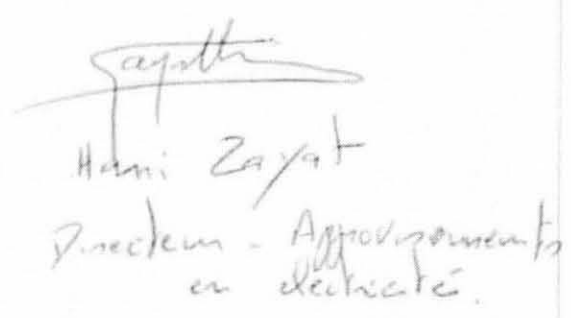 Hani Zayat
Directeur - Approvisionnements
en électricité.